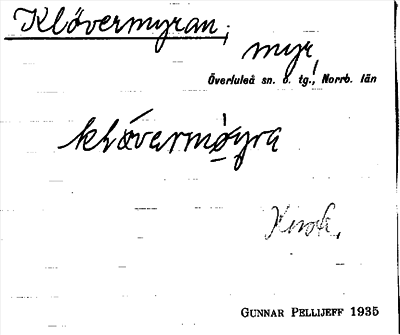 Klövermyran,
myr,
Överluleå sn. o. tg., Norrb. län
klövermøyra
GUNNAR PELLIJEFF 1935